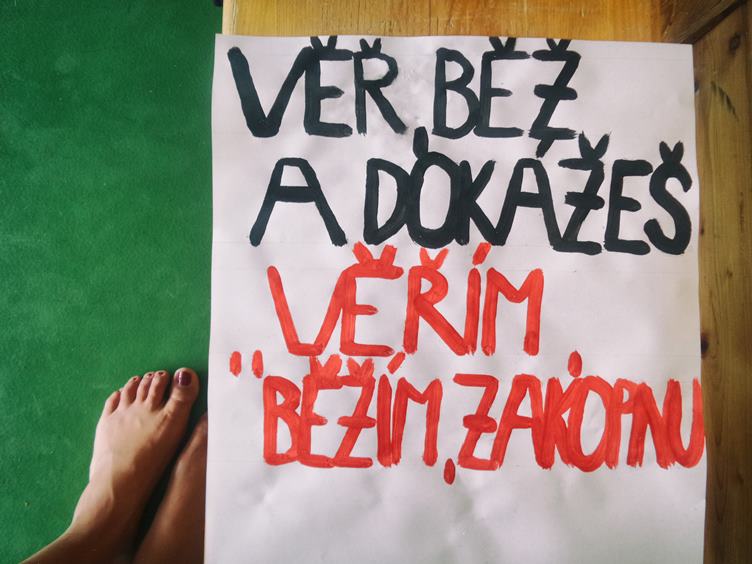 VĚŘ, BĚŽ
A DOKÁŽEŠ
„VĚŘÍM,
BĚŽÍM, ZAKOPNU